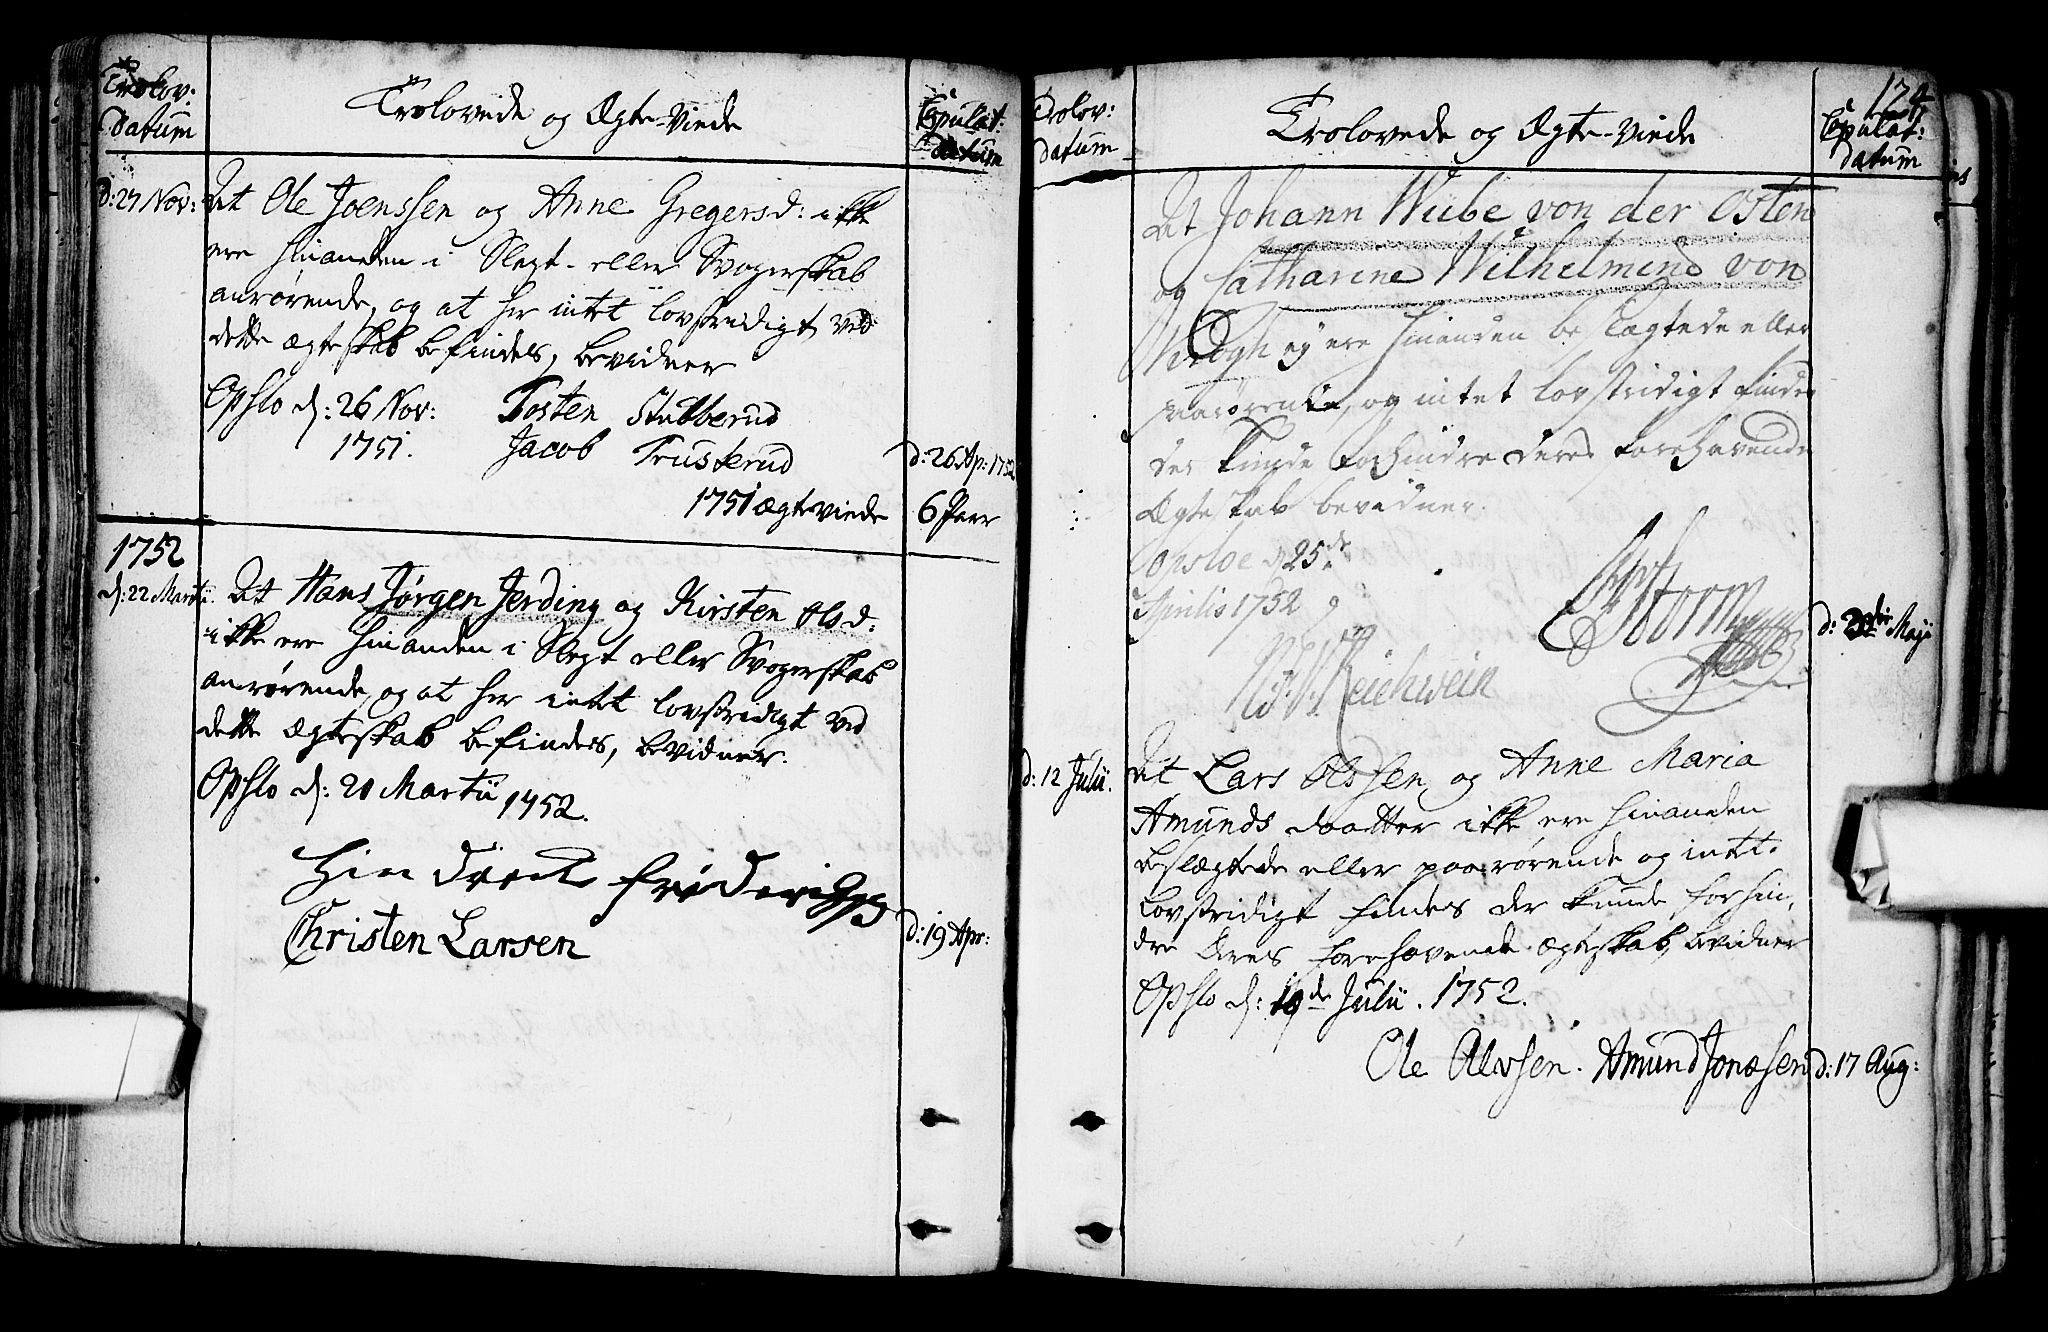 Trolov:
datum
Trolovede og Ægte-viede
Copulat:
datum
d: 27 Nov:
At Ole Joenssen og Anne Gregersd: ikke
ere hinanden i Slegt- eller Svogerskab
anrørende, og at her intet lovstridigt ved
dette Ægteskab befindes, bevidner
Opslo d: 26 Nov: Tosten Stubberud
1751. Jacob Trusterud
d: 26 Ap: 1752
1751 ægteviede 6 Parr
1752
d: 22 Martii.
At Hans Jørgen Jerding og Kirsten Olsd:
ikke ere hinanden i Slegt eller Svogerskab
anrørende, og at her intet lovstridigt ved
dette Ægteskab befindes, bevidner.
Opslo d: 20 Martii 1752.
Hindrick Friderichs
Christen Larsen
d: 19 Apr:
124
Trolov:
datum
Trolovede og Ægte-viede
Copulat:
datum
At Johann Wiebe von der Osten
og Catharine Wilhelmine von
ej ere hinanden beslægtede eller
paarørende, og intet lovstridigt findes
der kunde forhindre deres forehavende
Ægteskab bevidner.
Opsloe d 25de
Aprilis 1752
Storm
Reichwein
Maji
d: 12 Julii.
At Lars Olssen og Anne Maria
Amunds daatter ikke ere hinanden
beslægtede eller paarørende og intet
lovstridigt findes der kunde forhin-
dre deres forehavende Ægteskab, bevidner
Opslo d: 10de Julii. 1752.
Ole Alvsen. Amund Jonæsen
d: 17 Aug: